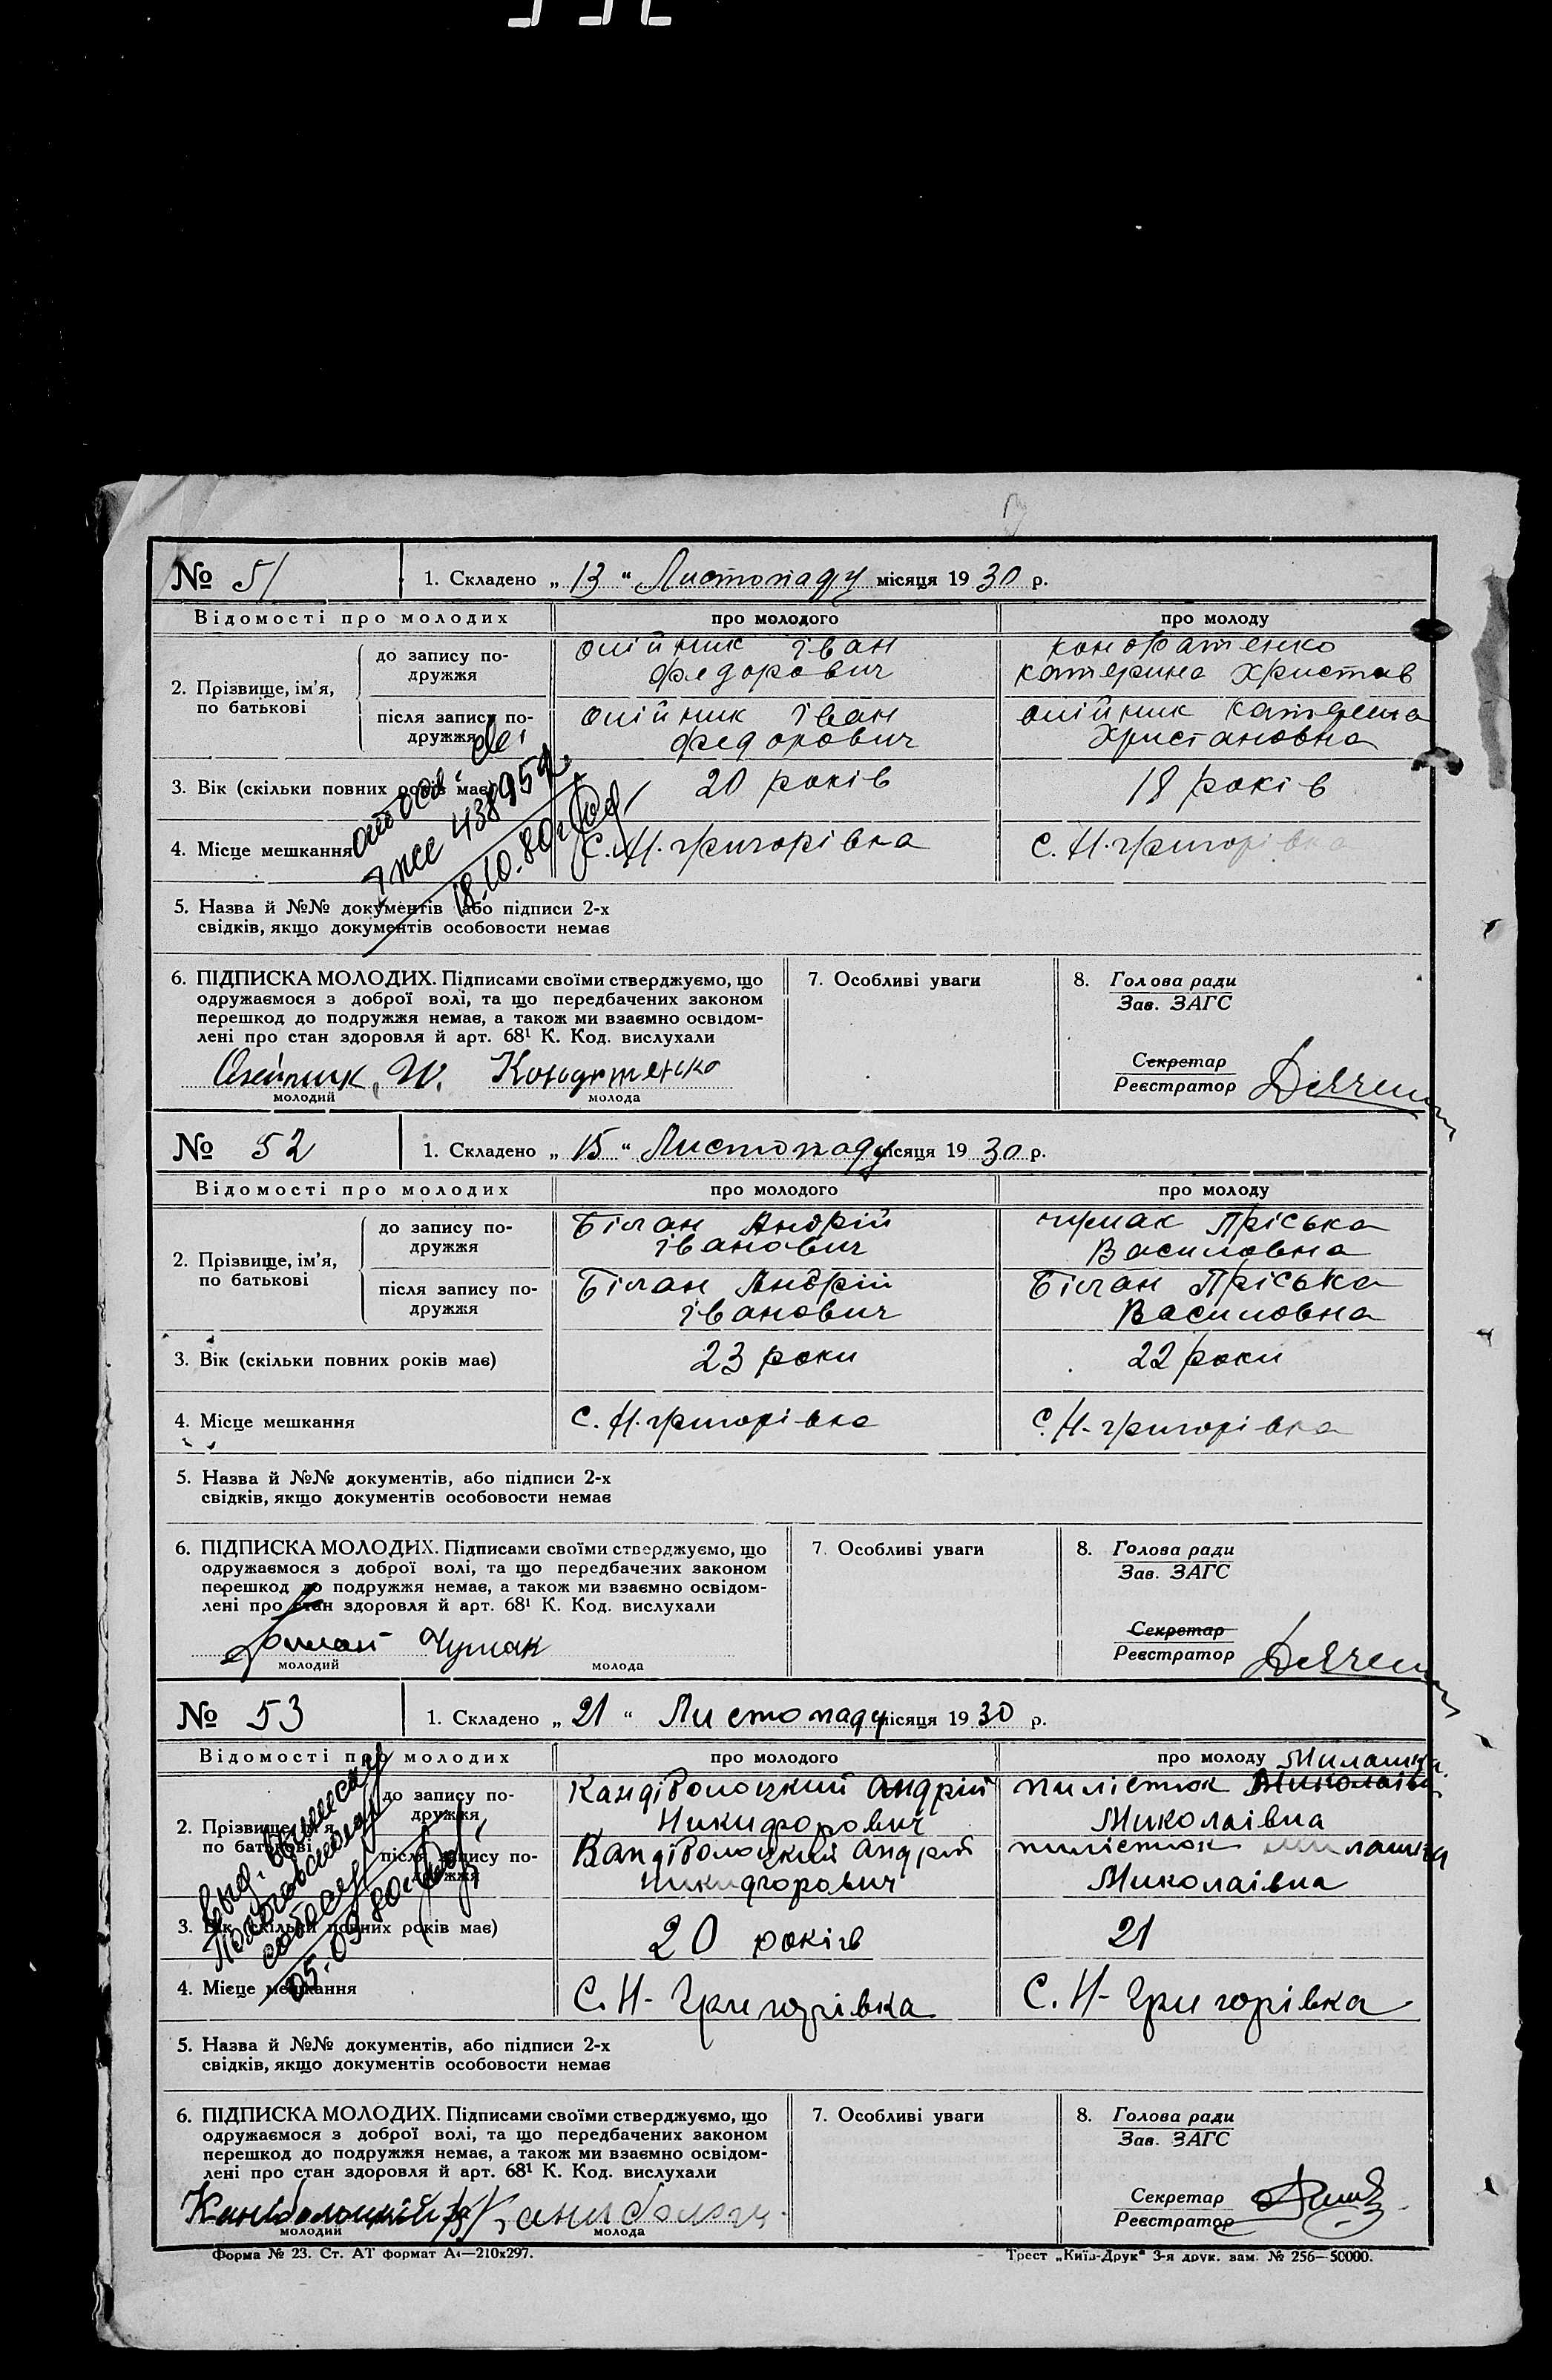 № 51
1. Складено „ 13 “ Листопаду місяця 1930 р.
Відомості про молодих
про молодого
про молоду
2. Прізвище, ім’я, по батькові
до запису по-
дружжя
Олійник Іван
Федорович
Кондратенко
Катерина Христов
після запису по-
дружжя
Олійник Іван
Федорович
Олійник Катерина
Христановна
3. Вік (скільки повних років має)
20 років
18 років
4. Місце мешкання
С. Н. Григорівка
С. Н. Григорівка
438959
18.10.80г.
5. Назва й №№ документів або підписи 2-х
свідків, якщо документів особовости немає
6. ПІДПИСКА МОЛОДИХ. Підписами своїми стверджуємо, що
одружаємося з доброї волі, та що передбачених законом
перешкод до подружжя немає, а також ми взаємно освідом-
лені про стан здоровля й арт. 68¹ К. Код. вислухали
молодий
молода
7. Особливі уваги
8. Голова ради
Зав. ЗАГС
Секретар
Реєстратор
№ 52
1. Складено „ 15 “ Листопаду місяця 1930 р.
Відомості про молодих
про молодого
про молоду
2. Прізвище, ім’я,
по батькові
до запису по-
дружжя
Білан Андрій
Іванович
Чумак Пріська
Василовна
після запису по-
дружжя
Білан Андрій
Іванович
Білан Пріська
Василовна
3. Вік (скільки повних років має)
23 роки
22 роки
4. Місце мешкання
С. Н. Григорівка
С. Н. Григорівка
5. Назва й №№ документів, або підписи 2-х
свідків, якщо документів особовости немає
6. ПІДПИСКА МОЛОДИХ. Підписами своїми стверджуємо, що
одружаємося з доброї волі, та що передбачених законом
перешкод до подружжя немає, а також ми взаємно освідом-
лені про стан здоровля й арт. 68¹ К. Код. вислухали
Чумак
молодий
молода
7. Особливі уваги
8. Голова ради
Зав. ЗАГС
Секретар
Реєстратор
№ 53
1. Складено „ 21 “ Листопаду місяця 1930 р.
Відомості про молодих
про молодого
про молоду
2. Прізвище, ім’я
по батькові
до запису по-
дружжя
Кандіболоцкий Андрій
Никифорович
Милашка
Пилісток Миколаівн
Миколаівна
після запису по-
дружжя
Кандіболоцкий Андрій
Никифорович
Пилісток Милашка
Миколаівна
3. Вік (скільки повних років має)
20 років
21
4. Місце мешкання
С. Н-Григорівка
С. Н-Григорівка
05.09.80г.
5. Назва й №№ документів, або підписи 2-х
свідків, якщо документів особовости немає
6. ПІДПИСКА МОЛОДИХ. Підписами своїми стверджуємо, що
одружаємося з доброї волі, та що передбачених законом
перешкод до подружжя немає, а також ми взаємно освідом-
лені про стан здоровля й арт. 68¹ К. Код. вислухали
молодий
молода
7. Особливі уваги
8. Голова ради
Зав. ЗАГС
Секретар
Реєстратор
Форма № 23. Ст. АТ формат А₄—210х297.
Трест „Київ-Друк“ 3-я друк. зам. № 256—50000.